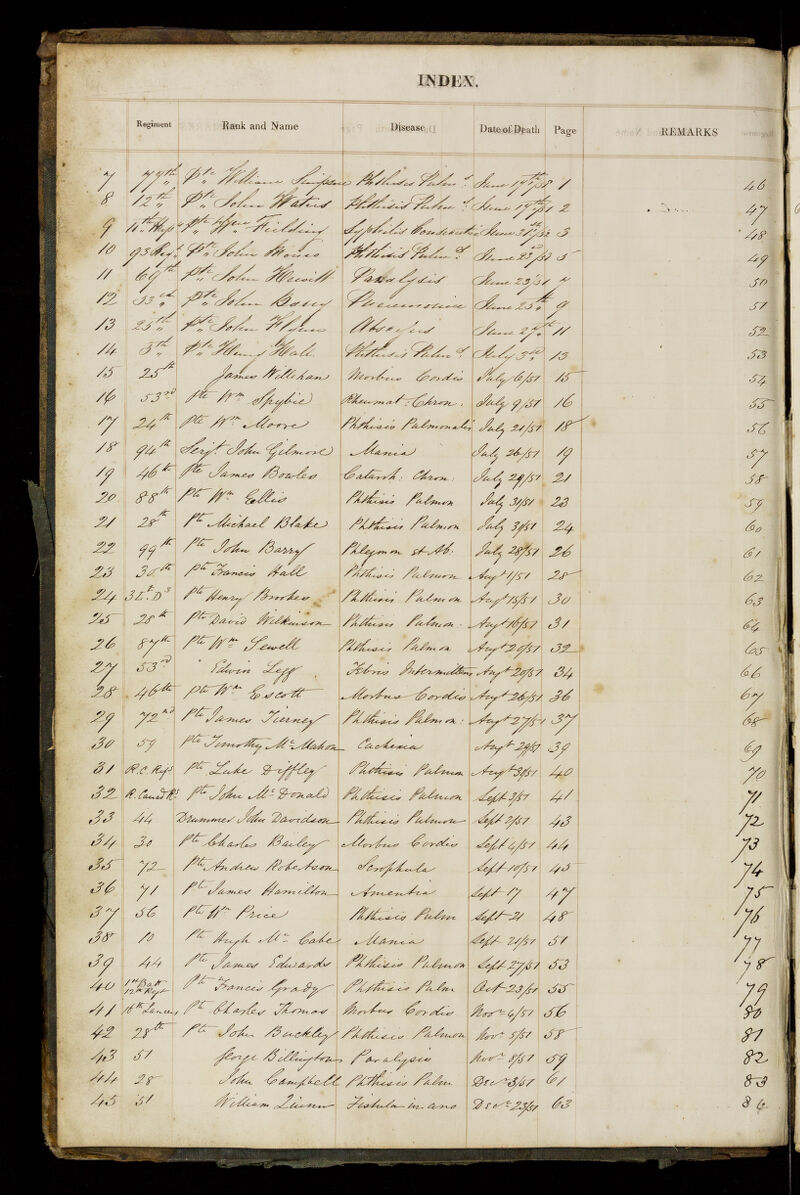 INDEX.
Regiment Rank and Name Disease Date of Death Page REMARKS
7 77th Pte William Simpson Phthisis Pulm. June 17th 1 46
8 12th Pte John Waters Phthisis Pulm. June 19th/51 2 47
9 Pte Wm Feilding Syphilis Consecutiva June 3 48
10 93 Regt Pte John Phthisis Pulm. June 23rd 5 49
11 69th Pte John Hewitt Paralysis June 23/51 7 50
12 33rd Pte John Pneumonia June 25th 9 51
13 25th Pte John Flynn Abscessus June 27th 11 52
14 3th Pte Henry Hall Phthisis Pulm. July 3rd 13 53
15 25th James Willihan Morbus Cordis July 6/51 15 54
16 53rd Pte Wm Spybie Rheumat: Chron. July 9/51 16 55
17 24th Pte Wm Moore Phthisis Pulmonalis July 21/51 18 56
18 94th Serjt John Gilmore Mania July 26/51 19 57
19 46th Pte James Bowles Catarrh: Chron: July 29/51 21 58
20 88th Pte Wm Ellis Phthisis Pulmon July 31/51 23 59
21 28th Pte Michael Blake Phthisis Pulmon July 31/51 24 60
22 99th Pte John Barry Phlegmon et Ab. July 28/51 26 61
23 30th Pte Francis Hall Phthisis Pulmon Augt 1/51 28 62
24 3 Lt. Ds Pte Henry Brookes Phthisis Pulmon Augt 15/51 30 63
25 28th Pte David Wilkinson Phthisis Pulmon: Augt 16/51 31 64
26 87th Pte Wm Sewell Phthisis Pulmon Augt 20/51 32 65
27 53rd " Edwin Legg Febris Intermittens Augt 20/51 34 66
28 46th Pte Wm Escott Morbus Cordis Augt 26/51 36 67
29 72nd Pte James Tierney Phthisis Pulmon: Augt 27/51 37 68
30 59 Pte Timothy Mc Mahon Cachexia Augt 29/51 39 69
31 R.C. Rifs Pte Luke Diffley Phthisis Pulmon Augt 31/51 40 70
32 R. Canad Rs Pte John Mc Donald Phthisis Pulmon Sept 3/51 41 71
33 44 Drummer John Davidson Phthisis Pulmon Sept 2/51 43 72
34 30 Pte Charles Bailey Morbus Cordis Sept 4/51 44 73
35 72 Pte Andrew Robertson Scrophula Sept 10/51 45 74
36 71 Pte James Hamilton Amentia Sept 17 47 75
37 56 Pte Wm Price Phthisis Pulm Sept 21 48 76
38 10 Pte Hugh Mc Cabe Mania Sept 21/51 51 77
39 44 Pte James Edwards Phthisis Pulmon Sept 27/51 53 78
40 1st Batt 12th Regt Pte Francis Grady Phthisis Pulm Oct 23/51 55 79
41 16th Lancers Pte Charles Thomas Morbus Cordis Novr 6/51 56 80
42 28th Pte John Buckley Phthisis Pulmon Novr 5/51 58 81
43 51 George Billington Paralysis Novr 8/51 59 82
44 28 John Campbell Phthisis Pulm Decr 3/51 61 83
45 51 William Quinn Fistula in ano Decr 23/51 63 84